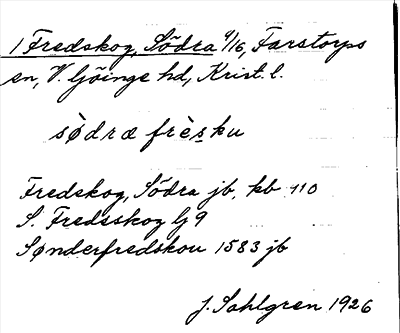 1 Fredskog, Södra 4/16, Farstorps
sn, V. Göinge hd, Krist. l.
sø̀dræ frèsku
Fredskog, Södra jb, kb 110
S. Fredsskog Gj 9
Sønderfredskou 1583 jb
J. Sahlgren 1926